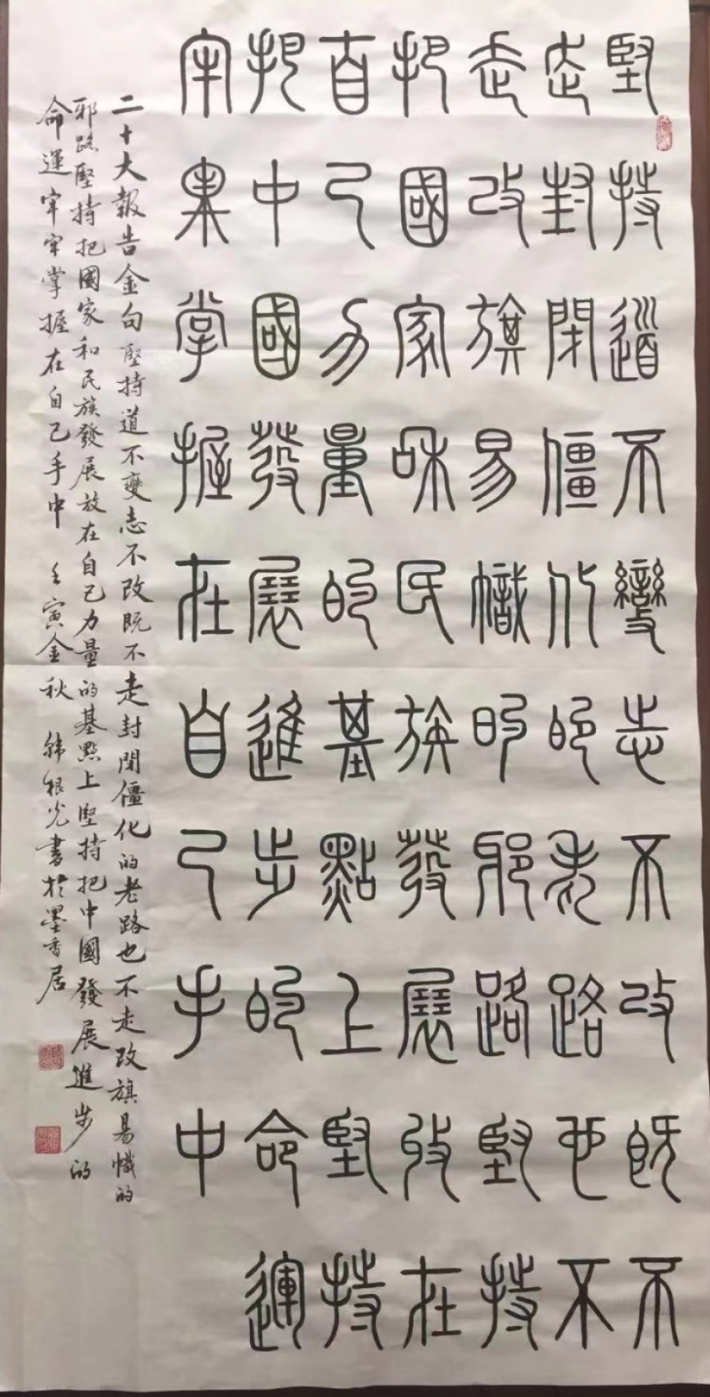 堅持道不變志不改既不
走封閉僵化的老路也不
走改旗易幟的邪路堅持
把國家和民族發展放在
自己力量的基點上堅持
把中國發展進步的命運
牢牢掌握在自己手中
二十大報告金句 堅持道不變志不改既不走封閉僵化的老路也不走改旗易幟的
邪路堅持把國家和民族發展放在自己力量的基點上堅持把中國發展進步的
命運牢牢掌握在自己手中 壬寅金秋 韩根光書於墨香居